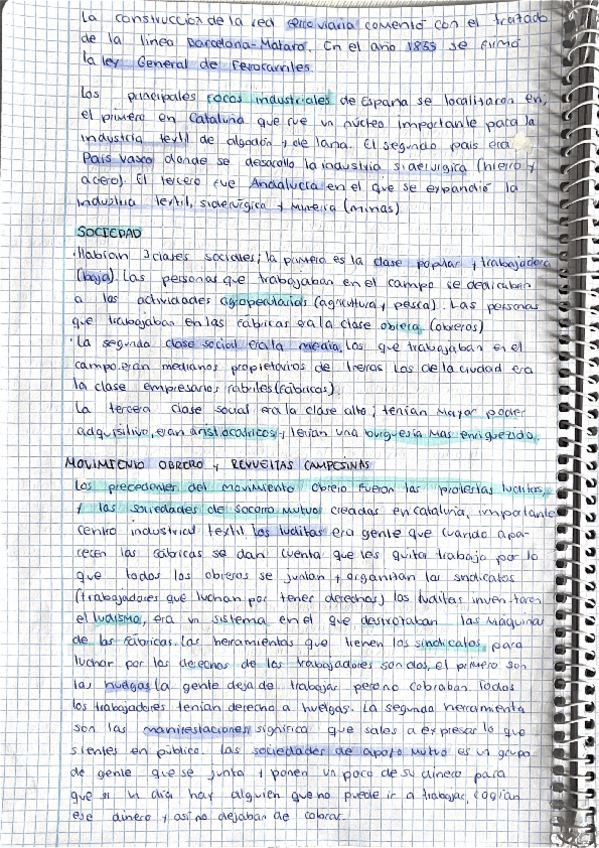 La construcción de la red ferroviaria comentó con el tratado
de la linea Barcelona-Mataró. En el año 1855 se firmó
la ley General de Ferocarriles.
Los principales focos industriales de España se localitaron en,
el primero en Cataluña que fue un núcleo importante para la
industria textil de algodón y de lana. El segundo pais era
Pais vasco donde se desarollo la industria siderurgica (hierro y
acero). El tercero fue Andalucia en el que se expandió la
industria textil, siderurgica y Mineira (minas)
SOCIEDAD
·Habian 3 clases sociales; la primera es la clase popular y trabajadora
(baja). Las personas que trabajaban en el campo se dedicaban
a las actividades agropecuarias (agricultura y pesca). Las personas
que trabajaban en las fábricas era la clase obrera (obreros)
·La segunda clase social era la media, los que trabajaban en el
campo eran medianos propietarios de tierras Los de la ciudad era
la clase empresarios fabriles (fábricas).
La tercera clase social era la clase alta; tenian mayor poder
adquisitivo, eran aristocatricos y tenian una burguesia mas enriquezida.
MOVIMIENTO OBRERO y REVUELTAS CAMPESINAS
Los precedentes del movimiento obrero fueron las protestas luditas,
y las sociedades de socorro mutuo creadas en cataluña, importante
centro industrial textil los luditas era gente que cuando apa-
recen las fábricas se dan cuenta que les quita trabajo por lo
que todos los obreros se juntan y organitan los sindicatos
(trabajadores que luchan por tener derechos) los luditas inventaron
el ludismo, era un sistema en el que destrotaban las maquinas
de las fábricas. Las heramientas que tienen los sindicatos para
luchar por los derechos de los trabajadores son dos, el primero son
las huelgas la gente deja de trabajar pero no cobraban. Todos
los trabajadores tenian derecho a huelgas. La segunda herramienta
son las manifestaciones significa que sales a expresar lo que
sientes en público. Las sociedades de apoyo mutuo es un grupo
de gente que se junta y ponen un poco de su dinero para
que si un dia hay alguien que no puede ir a trabajar, cogian
ese dinero y asi no dejaban de cobrar.